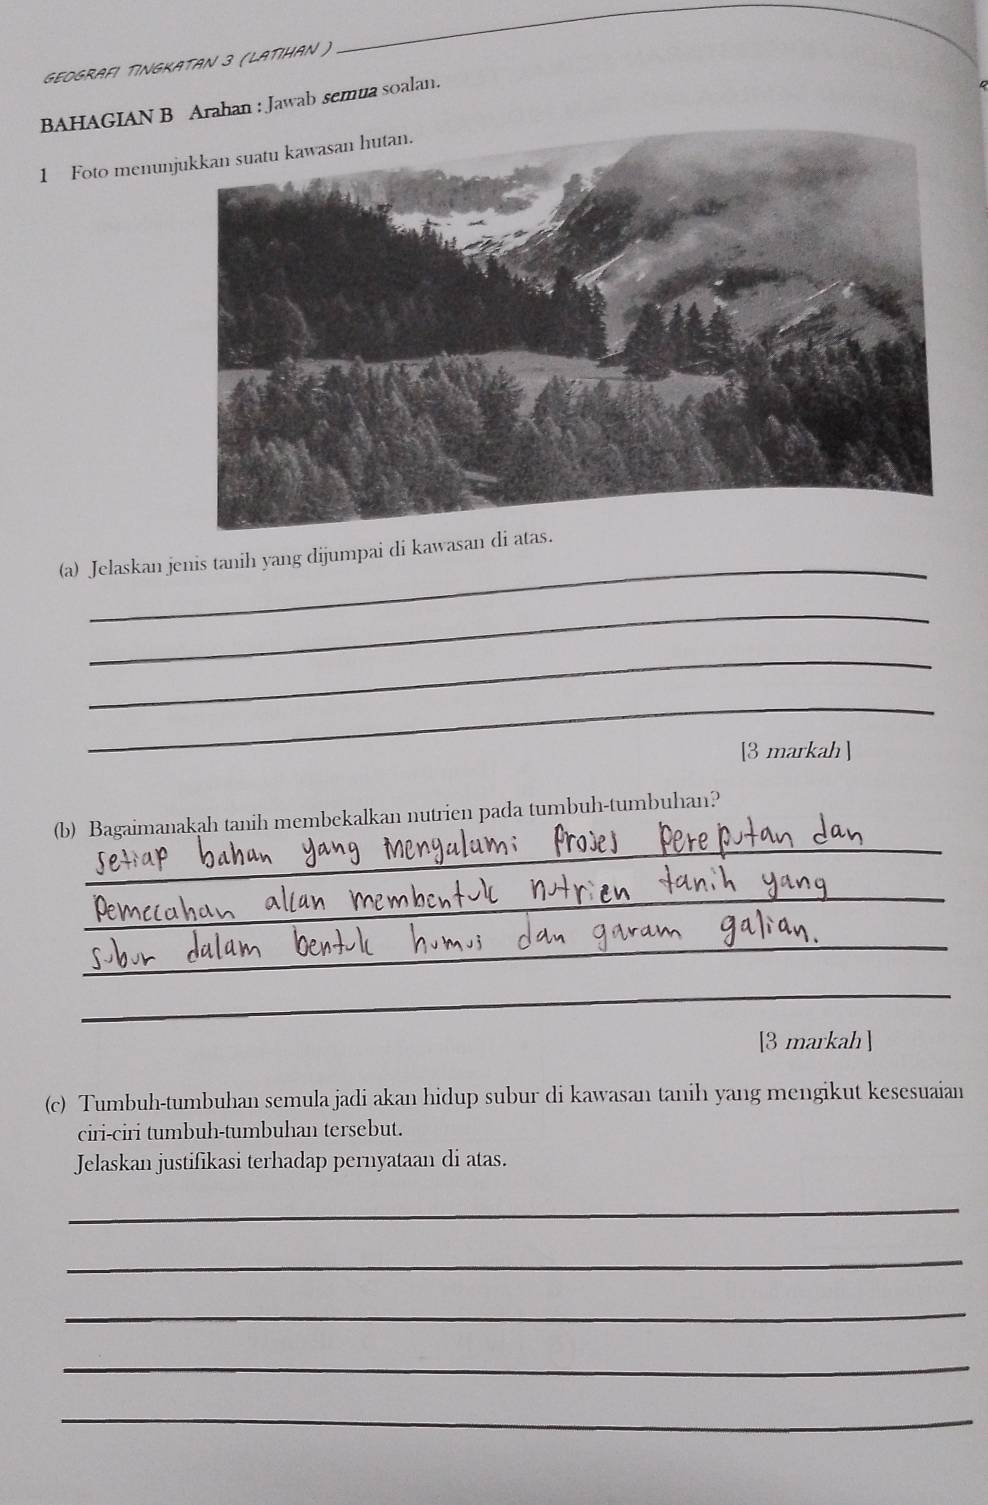 GEOGRAFI TINGKATAN 3 (LATIHAN)
BAHAGIAN B Arahan : Jawab semua soalan.
1 Foto menunjukkan suatu kawasan hutan.
(a) Jelaskan jenis tanih yang dijumpai di kawasan di atas.
[3 markah]
(b) Bagaimanakah tanih membekalkan nutrien pada tumbuh-tumbuhan?
setiap bahan yang mengalami proses pereputan dan
pemecahan akan membentuk nutrien tanih yang
subur dalam bentuk humus dan garam galian.
[3 markah]
(c) Tumbuh-tumbuhan semula jadi akan hidup subur di kawasan tanih yang mengikut kesesuaian
ciri-ciri tumbuh-tumbuhan tersebut.
Jelaskan justifikasi terhadap pernyataan di atas.